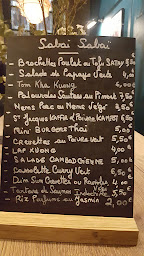 Sabai Sabaï
- Brochettes Poulet au Tofu SATAY 5,50
- Salade de Papaye Verte 4,00
- Tom Kha Kuong
- Palourdes Sautées au Piment 7,50
- Nems Porc ou Nems Vege 3,50
- St Jacques KAFFIR & POIVRE KAMPOT
- Mini Burgers THAÏ 5,50
- Crevettes au Poivre Vert
- LAP KUONG
- SALADE CAMBODGIENNE 5,00
- Cassolette Curry Vert
- Dim Sum Crevettes ou Raviolis
- Tartare de Saumon Indochine 5,50
- Riz Parfumé au Jasmin 2,00€